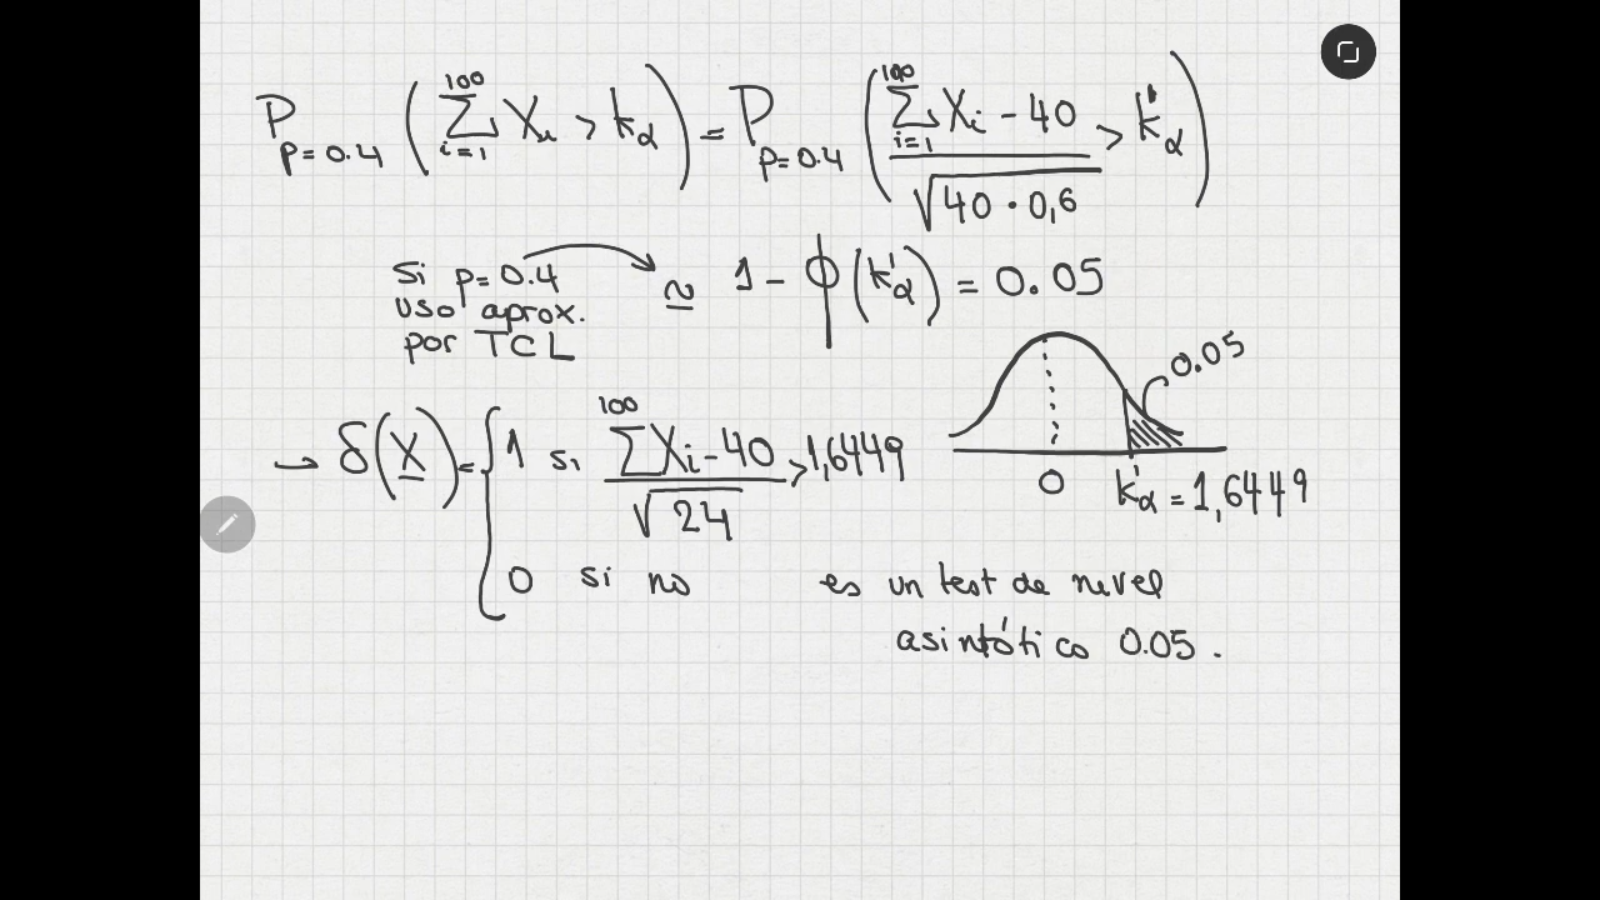 P_{p=0.4} ( \sum_{i=1}^{100} X_i > k_α ) = P_{p=0.4} ( \frac{\sum_{i=1}^{100} X_i - 40}{\sqrt{40 · 0,6}} > k'_α )
Si p=0.4
uso aprox.
por TCL
≃ 1 - ϕ(k'_α) = 0.05
0.05
0 k'_α = 1,6449
→ δ(X) = { 1 si \frac{\sum^{100} X_i - 40}{\sqrt{24}} > 1,6449
0 si no es un test de nivel
asintótico 0.05.